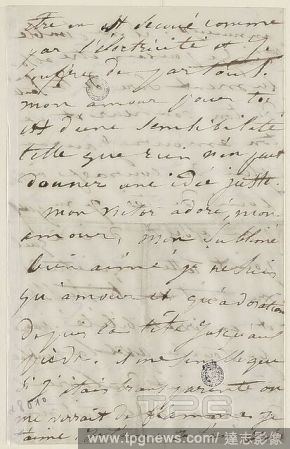 être en est secoué comme
par l'électricité et je
souffre de partout.
mon amour pour toi
est d'une sensibilité
telle que rien n'en peut
donner une idée juste.
mon victor adoré, mon
amour, mon sublime
bien-aimé je ne suis
qu'amour et qu'adoration
depuis la tête jusqu'aux
pieds. il me semble que
si j'étais transparente on
ne verrait de flamme je
t'aime
TPG
www.tpgnews.com 達志影像